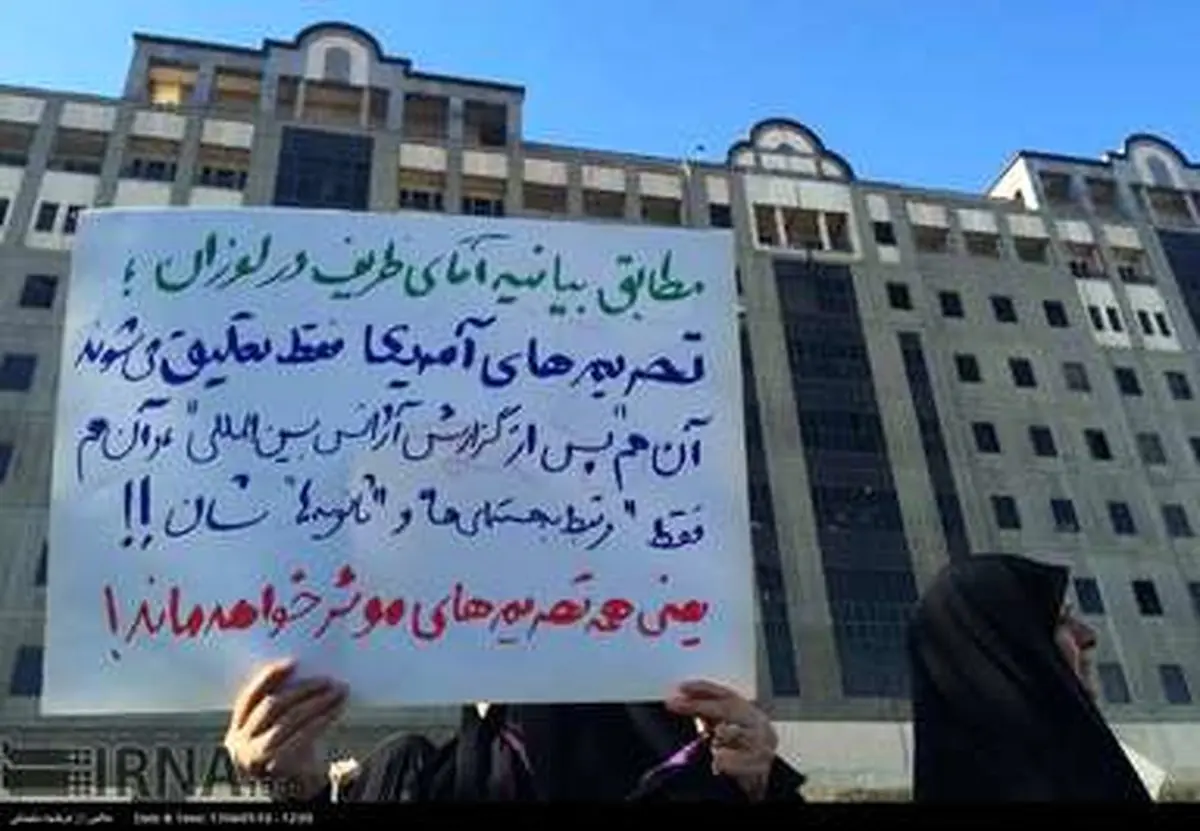 مطابق بیانیه آقای ظریف در لوزان ؛
تحریم های آمریکا فقط تعلیق می شوند
آن هم "پس از گزارش آژانس بین المللی" و آن هم
فقط "مرتبط با هسته‌ای ها" و "ثانویه‌ها" شان !!
یعنی همه تحریم های موثر خواهد ماند !
IRNA
عکس از
Date & Time: